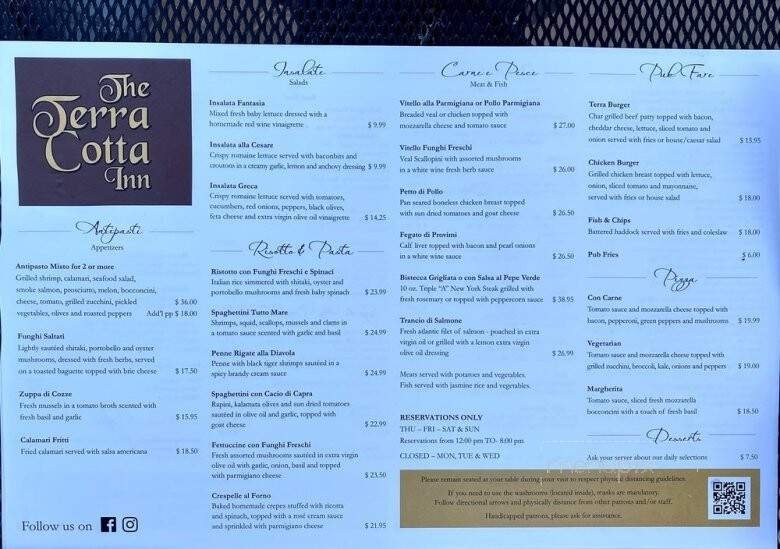 The
Terra
Cotta
Inn
Antipasti
Appetizers
Antipasto Misto for 2 or more
Grilled shrimp, calamari, seafood salad,
smoke salmon, prosciutto, melon, bocconcini,
cheese, tomato, grilled zucchini, pickled $ 36.00
vegetables, olives and roasted peppers Add'l pp $ 18.00
Funghi Saltati
Lightly sautéed shitaki, portobello and oyster
mushrooms, dressed with fresh herbs, served
on a toasted baguette topped with brie cheese $ 17.50
Zuppa di Cozze
Fresh mussels in a tomato broth scented with
fresh basil and garlic $ 15.95
Calamari Fritti
Fried calamari served with salsa americana $ 18.50
Follow us on
Insalate
Salads
Insalata Fantasia
Mixed fresh baby lettuce dressed with a
homemade red wine vinaigrette $ 9.99
Insalata alla Cesare
Crispy romaine lettuce served with baconbits and
croutons in a creamy garlic, lemon and anchovy dressing $ 9.99
Insalata Greca
Crispy romaine lettuce served with tomatoes,
cucumbers, red onions, peppers, black olives,
feta cheese and extra virgin olive oil vinaigrette $ 14.25
Risotto & Pasta
Ristotto con Funghi Freschi e Spinaci
Italian rice simmered with shitaki, oyster and
portobello mushrooms and fresh baby spinach $ 23.99
Spaghettini Tutto Mare
Shrimps, squid, scallops, mussels and clams in
a tomato sauce scented with garlic and basil $ 24.99
Penne Rigate alla Diavola
Penne with black tiger shrimps sautéed in a
spicy brandy cream sauce $ 24.99
Spaghettini con Cacio di Capra
Rapini, kalamata olives and sun dried tomatoes
sautéed in olive oil and garlic, topped with
goat cheese $ 22.99
Fettuccine con Funghi Freschi
Fresh assorted mushrooms sautéed in extra virgin
olive oil with garlic, onion, basil and topped
with parmigiano cheese $ 23.50
Crespelle al Forno
Baked homemade crepes stuffed with ricotta
and spinach, topped with a rosé cream sauce
and sprinkled with parmigiano cheese $ 21.95
Carne e Pesce
Meat & Fish
Vitello alla Parmigiana or Pollo Parmigiana
Breaded veal or chicken topped with
mozzarella cheese and tomato sauce $ 27.00
Vitello Funghi Freschi
Veal Scallopini with assorted mushrooms
in a white wine fresh herb sauce $ 26.00
Petto di Pollo
Pan seared boneless chicken breast topped
with sun dried tomatoes and goat cheese $ 26.50
Fegato di Provimi
Calf' liver topped with bacon and pearl onions
in a white wine sauce $ 26.50
Bistecca Grigliata o con Salsa al Pepe Verde
10 oz. Triple "A" New York Steak grilled with
fresh rosemary or topped with peppercorn sauce $ 38.95
Trancio di Salmone
Fresh atlantic filet of salmon - poached in extra
virgin oil or grilled with a lemon extra virgin
olive oil dressing $ 26.99
Meats served with potatoes and vegetables.
Fish served with jasmine rice and vegetables.
RESERVATIONS ONLY
THU – FRI – SAT & SUN
Reservations from 12:00 pm TO- 8:00 pm
CLOSED – MON, TUE & WED
Pub Fare
Terra Burger
Char grilled beef patty topped with bacon,
cheddar cheese, lettuce, sliced tomato and
onion served with fries or house/caesar salad $ 15.95
Chicken Burger
Grilled chicken breast topped with lettuce,
onion, sliced tomato and mayonnaise,
served with fries or house salad $ 18.00
Fish & Chips
Battered haddock served with fries and coleslaw $ 18.00
Pub Fries $ 6.00
Pizza
Con Carne
Tomato sauce and mozzarella cheese topped with
bacon, pepperoni, green peppers and mushrooms $ 19.99
Vegetarian
Tomato sauce and mozzarella cheese topped with
grilled zucchini, broccoli, kale, onions and peppers $ 19.00
Margherita
Tomato sauce, sliced fresh mozzarella
bocconcini with a touch of fresh basil $ 18.50
Desserts
Ask your server about our daily selections $ 7.50
menupix
Please remain seated at your table during your visit to respect physical distancing guidelines.
If you need to use the washrooms (located inside), masks are mandatory.
Follow directional arrows and physically distance from other patrons and/or staff.
Handicapped patrons, please ask for assistance.